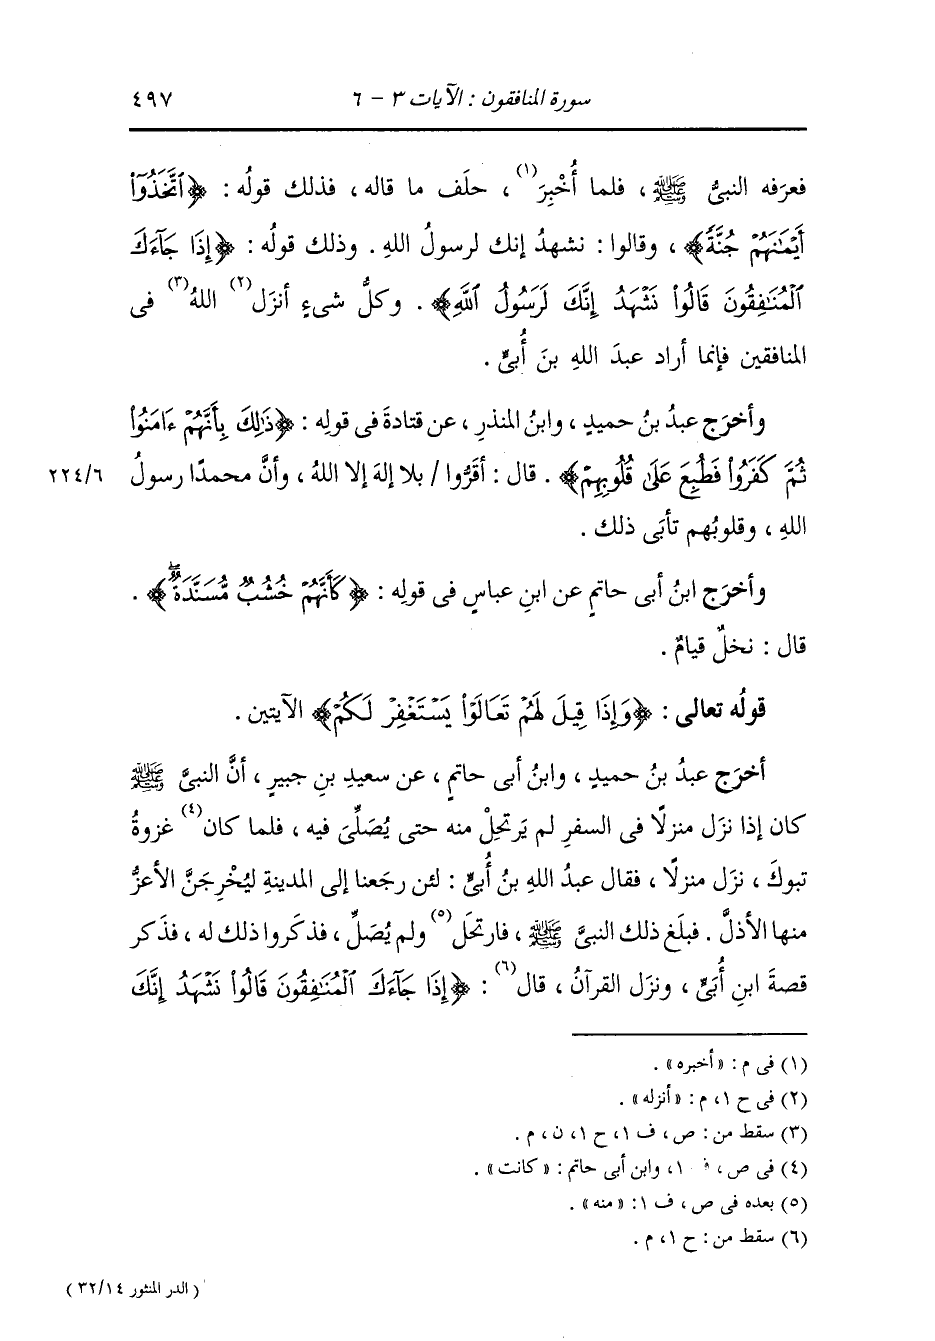 سورة المنافقون : الآيات ٣ - ٦ ٤٩٧
فعرَفه النبىُّ ﷺ ، فلما أُخْبِرَ(١) ، حلَف ما قاله ، فذلك قولُه : ﴿ٱتَّخَذُوٓا۟
أَيْمَٰنَهُمْ جُنَّةً﴾ ، وقالوا : نشهدُ إنك لرسولُ اللهِ . وذلك قولُه : ﴿إِذَا جَآءَكَ
ٱلْمُنَٰفِقُونَ قَالُوا۟ نَشْهَدُ إِنَّكَ لَرَسُولُ ٱللَّهِ﴾ . وكلُّ شىءٍ أنزَل(٢) اللهُ(٣) فى
المنافقين فإنما أراد عبدَ اللهِ بنَ أُبىٍّ .
وأخرَج عبدُ بنُ حميدٍ ، وابنُ المنذرِ ، عن قتادةَ فى قولِه : ﴿ذَٰلِكَ بِأَنَّهُمْ ءَامَنُوا۟
ثُمَّ كَفَرُوا۟ فَطُبِعَ عَلَىٰ قُلُوبِهِمْ﴾ . قال : أقَرُّوا / بلا إلهَ إلا اللهُ ، وأنَّ محمدًا رسولُ ٢٢٤/٦
اللهِ ، وقلوبُهم تأبَى ذلك .
وأخرَج ابنُ أبى حاتمٍ عن ابنِ عباسٍ فى قولِه : ﴿كَأَنَّهُمْ خُشُبٌ مُّسَنَّدَةٌۖ﴾ .
قال : نخلٌ قيامٌ .
قولُه تعالى : ﴿وَإِذَا قِيلَ لَهُمْ تَعَالَوْا۟ يَسْتَغْفِرْ لَكُمْ﴾ الآيتين .
أخرَج عبدُ بنُ حميدٍ ، وابنُ أبى حاتمٍ ، عن سعيدِ بنِ جبيرٍ ، أنَّ النبىَّ ﷺ
كان إذا نزَل منزلًا فى السفرِ لم يَرتحِلْ منه حتى يُصَلِّىَ فيه ، فلما كان(٤) غزوةُ
تبوكَ ، نزَل منزلًا ، فقال عبدُ اللهِ بنُ أُبىٍّ : لئن رجَعنا إلى المدينةِ ليُخْرِجَنَّ الأعزُّ
منها الأذلَّ . فبلَغ ذلك النبىَّ ﷺ ، فارتحَل(٥) ولم يُصَلِّ ، فذكَروا ذلك له ، فذَكر
قصةَ ابنِ أُبَىٍّ ، ونزَل القرآنُ ، قال(٦) : ﴿إِذَا جَآءَكَ ٱلْمُنَٰفِقُونَ قَالُوا۟ نَشْهَدُ إِنَّكَ
(١) فى م : « أخبره » .
(٢) فى ح ١، م : « أنزله » .
(٣) سقط من : ص ، ف ١، ح ١، ن ، م .
(٤) فى ص ، ف ١، وابن أبى حاتم : « كانت » .
(٥) بعده فى ص ، ف ١: « منه » .
(٦) سقط من : ح ١، م .
( الدر المنثور ٣٢/١٤ )